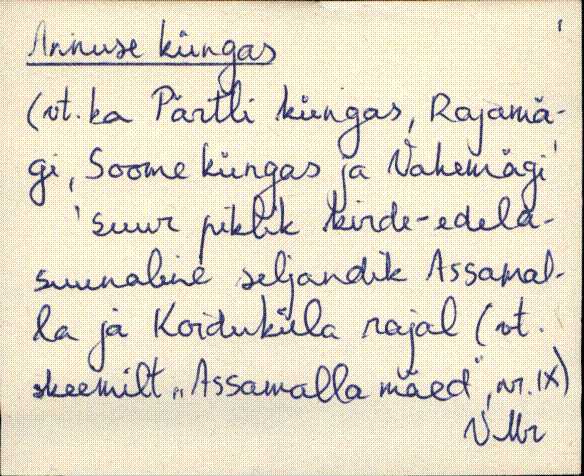 Annuse küngas
(vt. ka Pärtli küngas, Rajamä-
gi, Soome küngas ja Vahemägi
'suur piklik kirde-edela-
suunaline seljandik Assamal-
la ja Koiduküla rajal (vt.
skeemilt „Assamalla mäed", nr. IX)